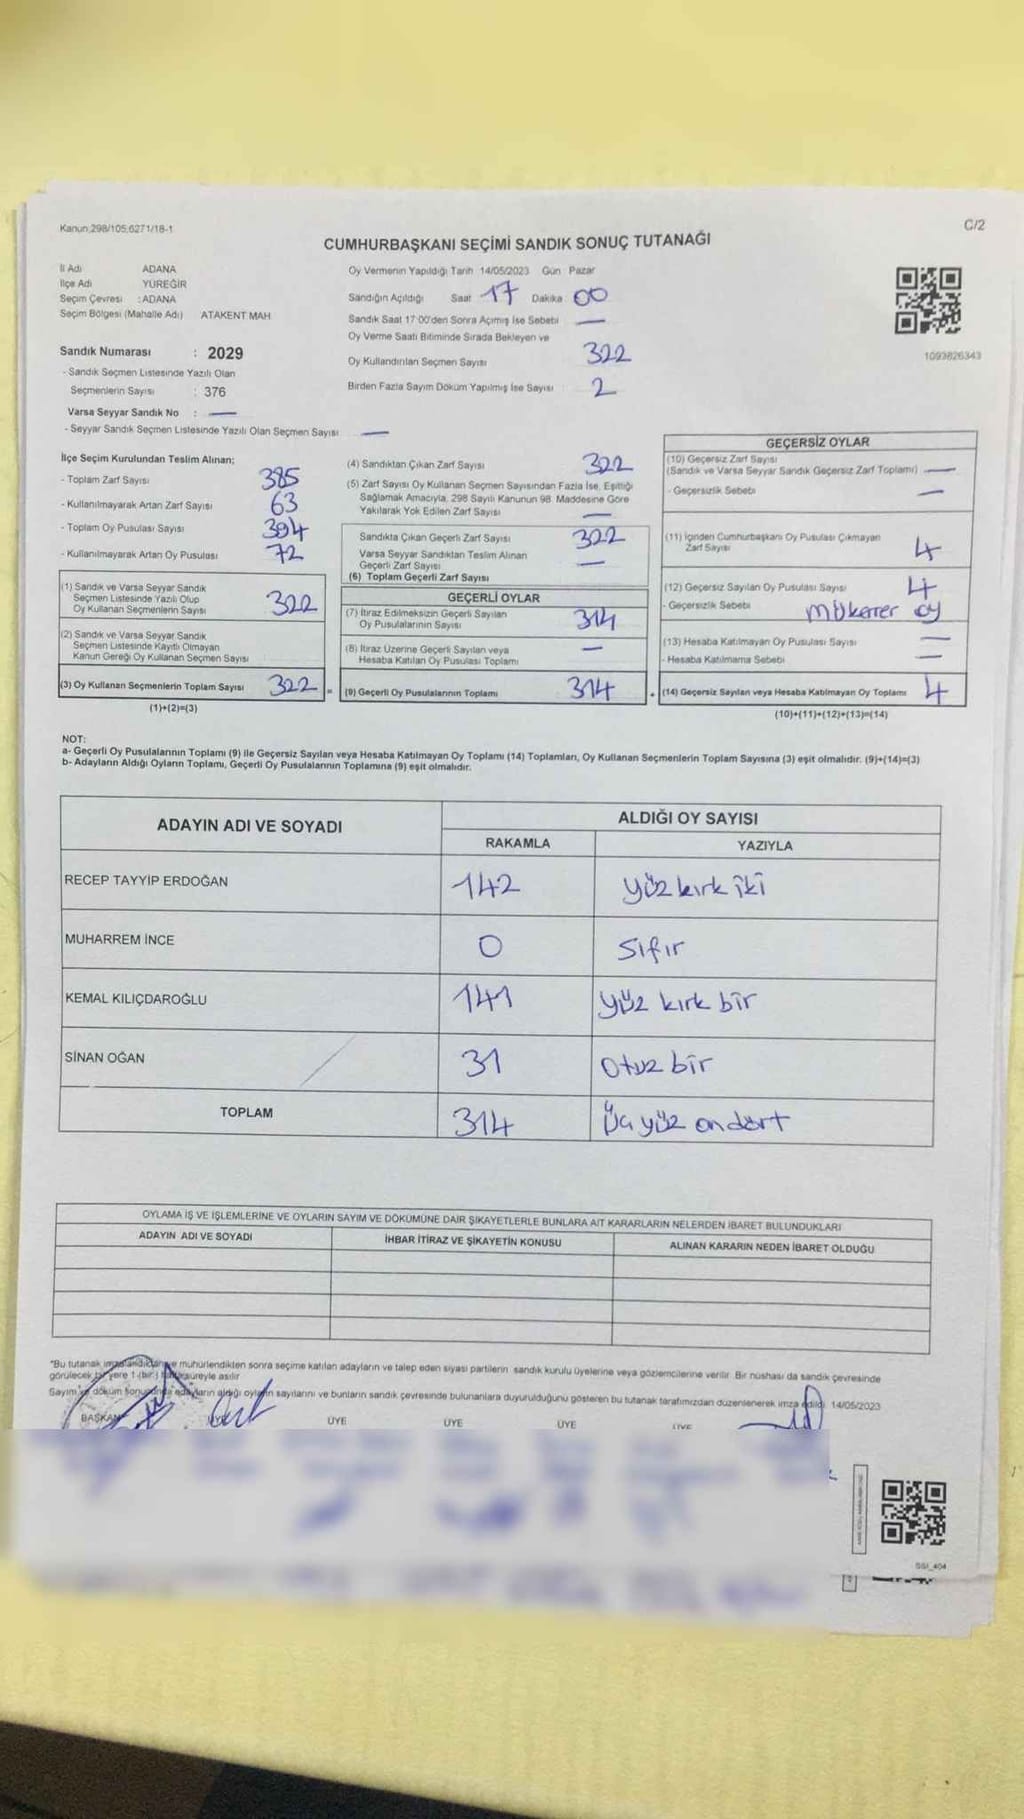 Kanun;298/105;6271/18-1
C/2
CUMHURBAŞKANI SEÇİMİ SANDIK SONUÇ TUTANAĞI
İl Adı ADANA
İlçe Adı YÜREĞİR
Seçim Çevresi : ADANA
Seçim Bölgesi (Mahalle Adı) ATAKENT MAH
Sandık Numarası : 2029
- Sandık Seçmen Listesinde Yazılı Olan
Seçmenlerin Sayısı : 376
Varsa Seyyar Sandık No : —
- Seyyar Sandık Seçmen Listesinde Yazılı Olan Seçmen Sayısı —
Oy Vermenin Yapıldığı Tarih 14/05/2023 Gün Pazar
Sandığın Açıldığı Saat 17 Dakika 00
Sandık Saat 17:00'den Sonra Açılmış İse Sebebi —
Oy Verme Saati Bitiminde Sırada Bekleyen ve
Oy Kullandırılan Seçmen Sayısı 322
Birden Fazla Sayım Döküm Yapılmış İse Sayısı : 2
1093826343
İlçe Seçim Kurulundan Teslim Alınan;
- Toplam Zarf Sayısı 385
- Kullanılmayarak Artan Zarf Sayısı 63
- Toplam Oy Pusulası Sayısı 394
- Kullanılmayarak Artan Oy Pusulası 72
(1) Sandık ve Varsa Seyyar Sandık
Seçmen Listesinde Yazılı Olup
Oy Kullanan Seçmenlerin Sayısı 322
(2) Sandık ve Varsa Seyyar Sandık
Seçmen Listesinde Kayıtlı Olmayan
Kanun Gereği Oy Kullanan Seçmen Sayısı
(3) Oy Kullanan Seçmenlerin Toplam Sayısı 322
(1)+(2)=(3)
(4) Sandıktan Çıkan Zarf Sayısı 322
(5) Zarf Sayısı Oy Kullanan Seçmen Sayısından Fazla İse, Eşitliği
Sağlamak Amacıyla, 298 Sayılı Kanunun 98. Maddesine Göre
Yakılarak Yok Edilen Zarf Sayısı —
Sandıkta Çıkan Geçerli Zarf Sayısı 322
Varsa Seyyar Sandıktan Teslim Alınan
Geçerli Zarf Sayısı —
(6) Toplam Geçerli Zarf Sayısı
GEÇERLİ OYLAR
(7) İtiraz Edilmeksizin Geçerli Sayılan
Oy Pusulalarının Sayısı 314
(8) İtiraz Üzerine Geçerli Sayılan veya
Hesaba Katılan Oy Pusulası Toplamı —
= (9) Geçerli Oy Pusulalarının Toplamı 314
GEÇERSİZ OYLAR
(10) Geçersiz Zarf Sayısı
(Sandık ve Varsa Seyyar Sandık Geçersiz Zarf Toplamı) —
- Geçersizlik Sebebi —
(11) İçinden Cumhurbaşkanı Oy Pusulası Çıkmayan
Zarf Sayısı 4
(12) Geçersiz Sayılan Oy Pusulası Sayısı 4
- Geçersizlik Sebebi mükerrer oy
(13) Hesaba Katılmayan Oy Pusulası Sayısı —
- Hesaba Katılmama Sebebi —
+ (14) Geçersiz Sayılan veya Hesaba Katılmayan Oy Toplamı 4
(10)+(11)+(12)+(13)=(14)
NOT:
a- Geçerli Oy Pusulalarının Toplamı (9) ile Geçersiz Sayılan veya Hesaba Katılmayan Oy Toplamı (14) Toplamları, Oy Kullanan Seçmenlerin Toplam Sayısına (3) eşit olmalıdır. (9)+(14)=(3)
b- Adayların Aldığı Oyların Toplamı, Geçerli Oy Pusulalarının Toplamına (9) eşit olmalıdır.
ADAYIN ADI VE SOYADI
ALDIĞI OY SAYISI
RAKAMLA YAZIYLA
RECEP TAYYİP ERDOĞAN 142 yüz kırk iki
MUHARREM İNCE 0 Sıfır
KEMAL KILIÇDAROĞLU 141 yüz kırk bir
SİNAN OĞAN 31 Otuz bir
TOPLAM 314 Üç yüz on dört
OYLAMA İŞ VE İŞLEMLERİNE VE OYLARIN SAYIM VE DÖKÜMÜNE DAİR ŞİKAYETLERLE BUNLARA AİT KARARLARIN NELERDEN İBARET BULUNDUKLARI
ADAYIN ADI VE SOYADI İHBAR İTİRAZ VE ŞİKAYETİN KONUSU ALINAN KARARIN NEDEN İBARET OLDUĞU
*Bu tutanak imzalandıktan ve mühürlendikten sonra seçime katılan adayların ve talep eden siyasi partilerin sandık kurulu üyelerine veya gözlemcilerine verilir. Bir nüshası da sandık çevresinde
görülecek bir yere 1 (bir) hafta süreyle asılır
Sayım ve döküm sonucunda adayların aldığı oyların sayılarını ve bunların sandık çevresinde bulunanlara duyurulduğunu gösteren bu tutanak tarafımızdan düzenlenerek imza edildi. 14/05/2023
BAŞKAN ÜYE ÜYE ÜYE ÜYE